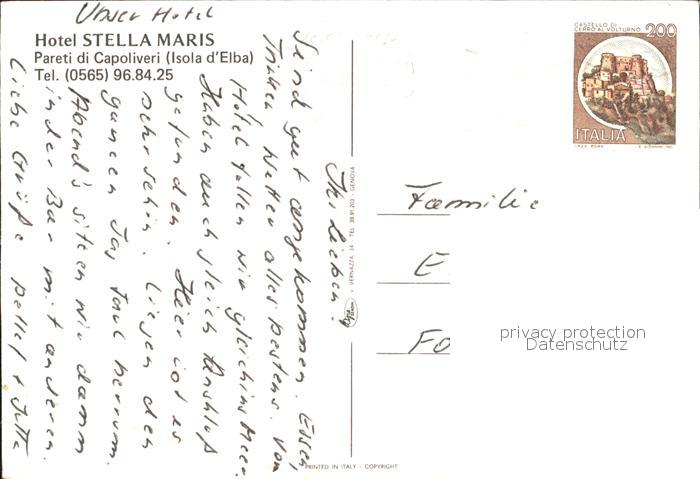 Unser Hotel
Hotel STELLA MARIS
Pareti di Capoliveri (Isola d'Elba)
Tel. (0565) 96.84.25
Ihr Lieben!
Sind gut angekommen. Essen,
Trinken Wetter alles bestens. Vom
Hotel fallen wir gleich ins Meer.
Haben auch gleich Anschluß
gefunden. Hier ist es
sehr schön. Liegen den
ganzen Tag faul herrum.
Abend's sitzen wir dann
in der Bar mit anderen.
Liebe Grüße Detlef + Jutta
VERNAZZA, 34 - TEL. 39.91.203 - GENOVA
PRINTED IN ITALY - COPYRIGHT
CASTELLO DI
CERRO AL VOLTURNO 200
ITALIA
Familie
E
Fo
privacy protection
Datenschutz